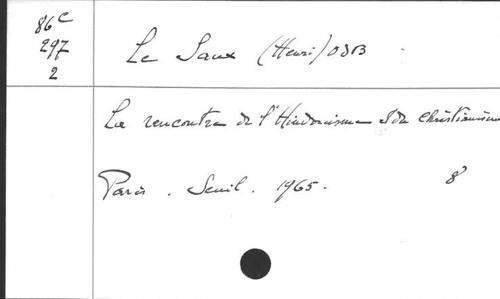 86C
297
2
Le Saux (Henri) OSB
La rencontre de l'Hindouisme et du Christianisme
Paris. Seuil. 1965. 8°